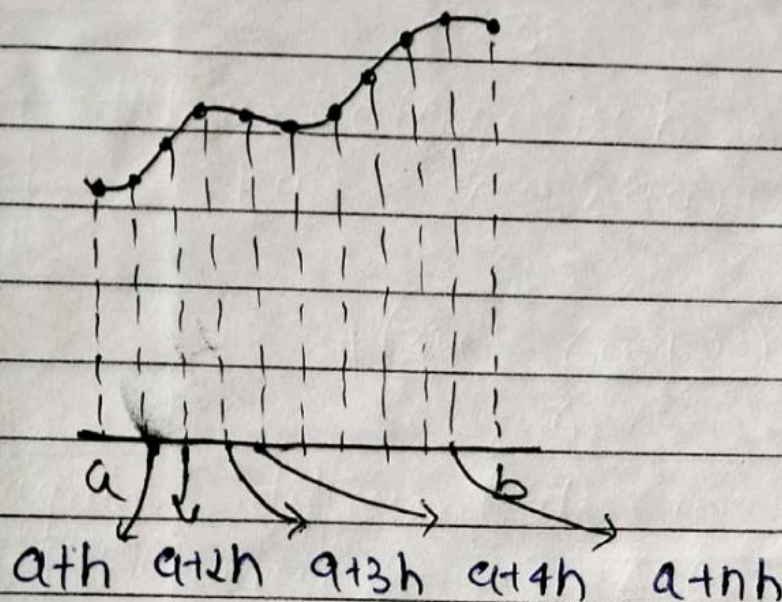 a b
a+h a+2h a+3h a+4h a+nh